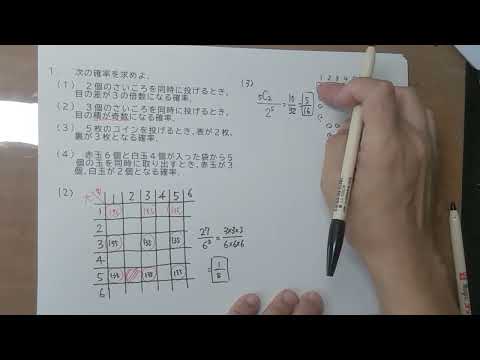 1. 次の確率を求めよ.
(1) 2個のさいころを同時に投げるとき,
目の差が3の倍数になる確率.
(2) 3個のさいころを同時に投げるとき,
目の積が奇数になる確率.
(3) 5枚のコインを投げるとき,表が2枚,
裏が3枚となる確率.
(4) 赤玉6個と白玉4個が入った袋から5
個の玉を同時に取り出すとき,赤玉が3
個,白玉が2個となる確率.
(2)
1 2 3 4 5 6
1 135 135 135
2
3 135 135 135
4
5 135 135 135
6
27/6³ = 3×3×3/6×6×6
= 1/8
(3)
5C2/2⁵ = 10/32 = 5/16
1 2 3 4